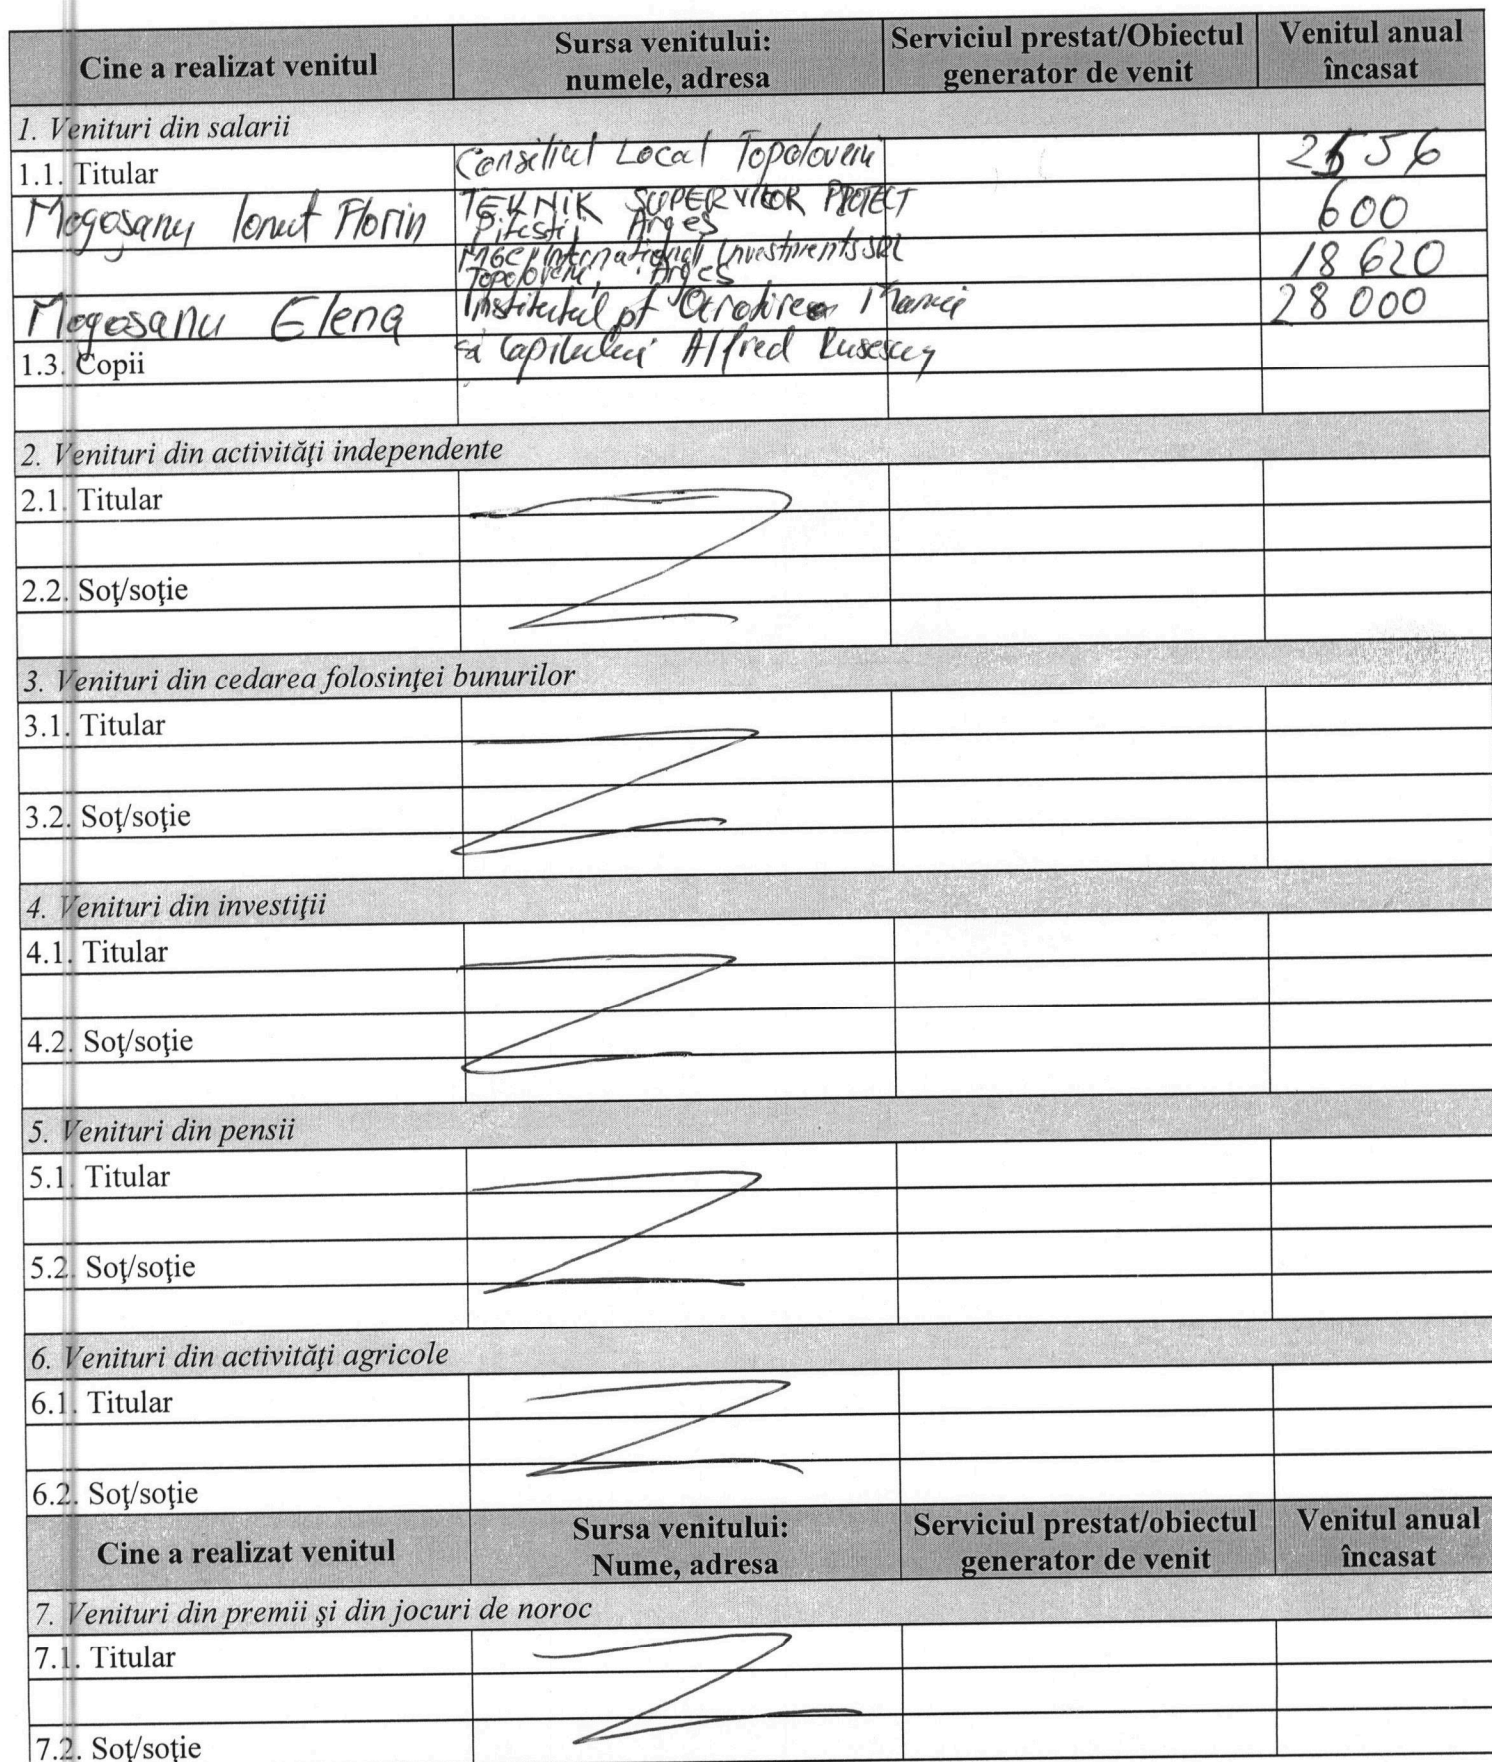 Cine a realizat venitul
Sursa venitului:
numele, adresa
Serviciul prestat/Obiectul
generator de venit
Venitul anual
încasat
1. Venituri din salarii
1.1. Titular
Consiliul Local Topoloveni
Mogoşanu Ionut Florin
TEKNIK SUPERVIZOR PROTECT
Pitesti, Arges
600
International Investments SRL
Topoloveni, Arges
18 620
Mogosanu Elena
Institutul pt Ocrotirea Mamei
28 000
1.3. Copii
si Copilului Alfred Rusescu
2. Venituri din activităţi independente
2.1. Titular
2.2. Soţ/soţie
3. Venituri din cedarea folosinţei bunurilor
3.1. Titular
3.2. Soţ/soţie
4. Venituri din investiţii
4.1. Titular
4.2. Soţ/soţie
5. Venituri din pensii
5.1. Titular
5.2. Soţ/soţie
6. Venituri din activităţi agricole
6.1. Titular
6.2. Soţ/soţie
Cine a realizat venitul
Sursa venitului:
Nume, adresa
Serviciul prestat/obiectul
generator de venit
Venitul anual
încasat
7. Venituri din premii şi din jocuri de noroc
7.1. Titular
7.2. Soţ/soţie